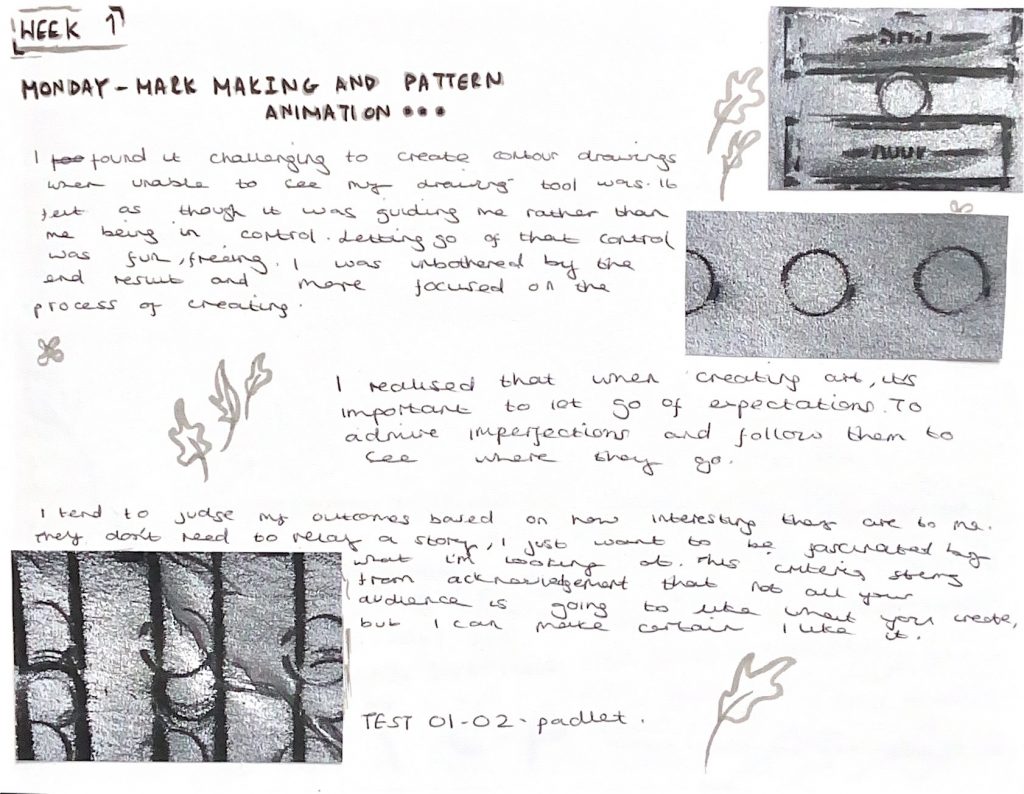 WEEK 1
MONDAY - MARK MAKING AND PATTERN
ANIMATION •••
I found it challenging to create contour drawings
when unable to see my drawing tool was. It
felt as though it was guiding me rather than
me being in control. Letting go of that control
was fun, freeing. I was unbothered by the
end result and more focused on the
process of creating.
I realised that when creating art, it's
important to let go of expectations. To
admire imperfections and follow them to
see where they go.
I tend to judge my outcomes based on how interesting they are to me.
They don't need to relay a story, I just want to be fascinated by
what I'm looking at. This criteria stems
from acknowledgement that not all your
audience is going to like what you create,
but I can make certain I like it.
TEST 01-02 - padlet.